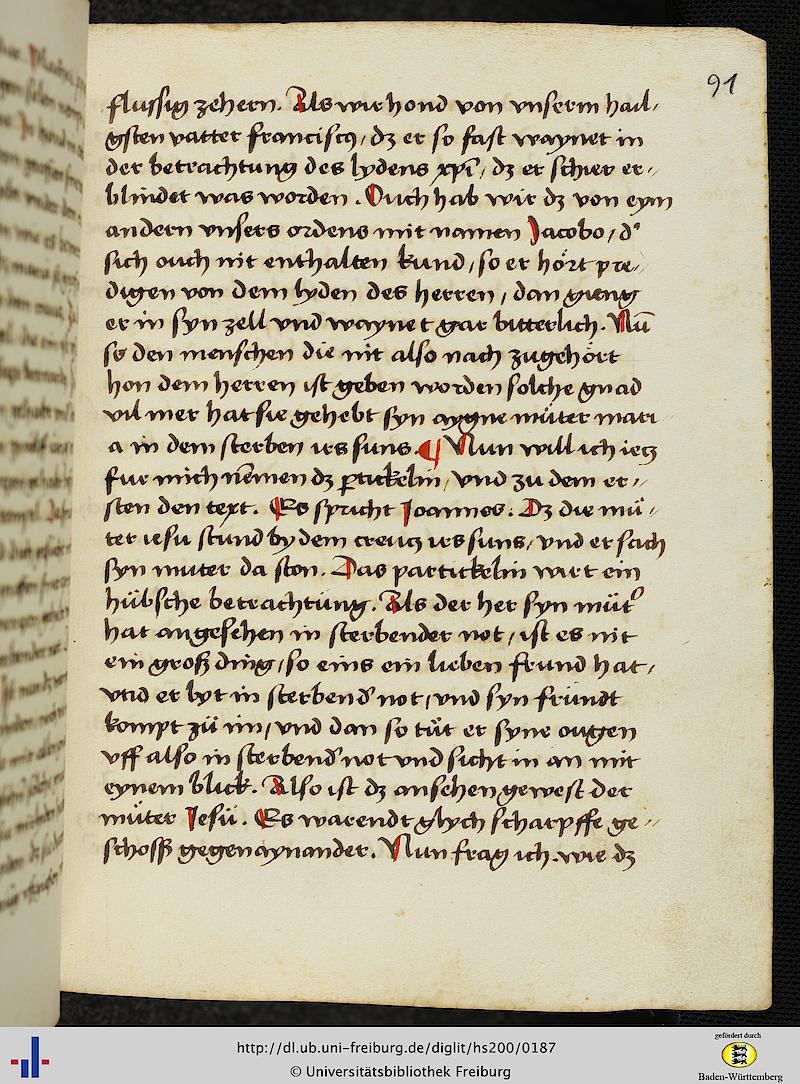 91
flussig zehern. Als wir hond von vnserm hail-
gsten vatter franciscꝰ, dz er so fast waynet in
der betrachtung des lydens xp̄i, dz er schier er-
blindet was worden. Ouch hab wir dz von eym
andern vnsers ordens mit namen Jacobo, d'
sich ouch nit enthalten kund, so er hört pre-
digen von dem lyden des herren, dan gieng
er in syn zell vnd waynet gar bitterlich. Nū
so den menschen die nit also nach zugehört
hon dem herren ist geben worden solche gnad
vil mer hat sie gehebt syn aygne müter mari
a in dem sterben irs suns. ¶ Nun will ich ietz
fur mich nēmen dz ꝑtickelin, vnd zu dem er-
sten den text. Es spricht Joannes. Dz die mü-
ter iesu stund by dem creutz irs suns, vnd er sach
syn muter da ston. Das partickelin wirt ein
hübsche betrachtüng. Als der her syn müt'
hat angesehen in sterbender not, ist es nit
ein groß ding, so eins ein lieben frund hat,
vnd er lyt in sterbend' not, vnd syn fründt
kompt zü im, vnd dan so tüt er syne ougen
vff also in sterbend' not vnd sicht in an mit
eynem blick. Also ist dz ansehen gewest der
müter Jesü. Es warendt glych scharpffe ge-
schoss gegen aynander. Nun frag ich. wie dz
http://dl.ub.uni-freiburg.de/diglit/hs200/0187
© Universitätsbibliothek Freiburg
gefördert durch
Baden-Württemberg